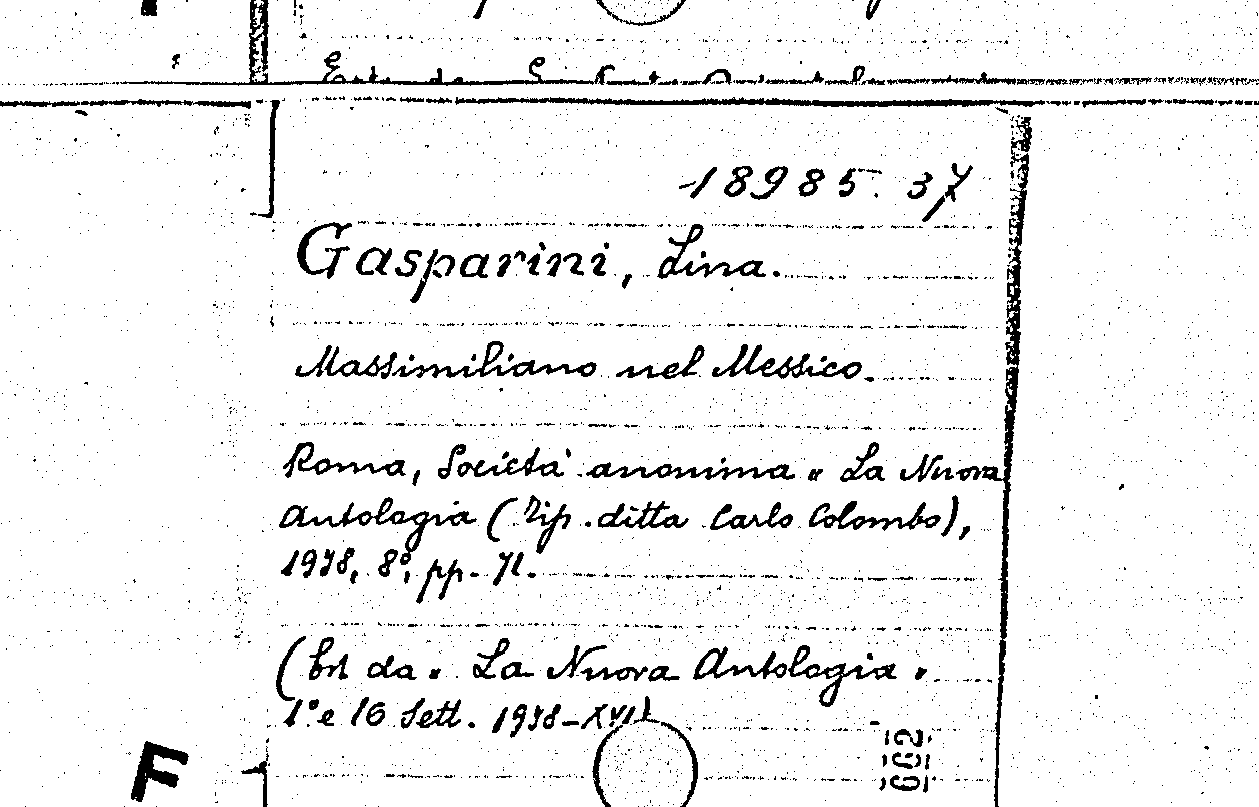 18985. 37
Gasparini, Lina.
Massimiliano nel Messico.
Roma, Società anonima "La Nuova
Antologia (Tip. ditta Carlo Colombo),
1938, 8°, pp. 71.
(Est da "La Nuova Antologia"
1° e 16 Sett. 1938-XVI)
662
F